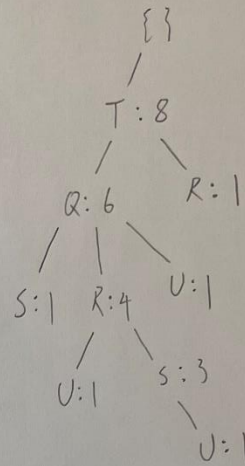 {}
T:8
Q:6 R:1
S:1 R:4 U:1
U:1 S:3
U:1